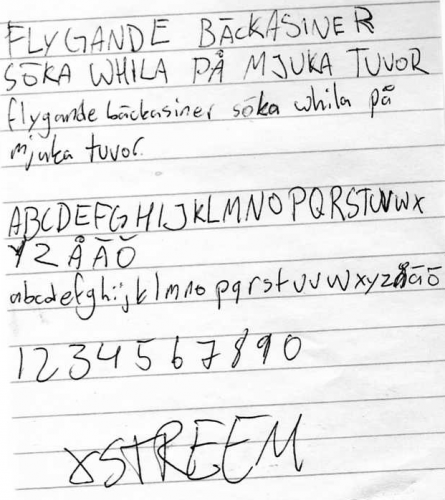 FLYGANDE BÄCKASINER
SÖKA WHILA PÅ MJUKA TUVOR
flygande bäckasiner söka whila på
mjuka tuvor.
ABCDEFGHIJKLMNOPQRSTUVWX
YZÅÄÖ
abcdefghijklmnopqrstuvwxyzåäö
1234567890
XSTREEM